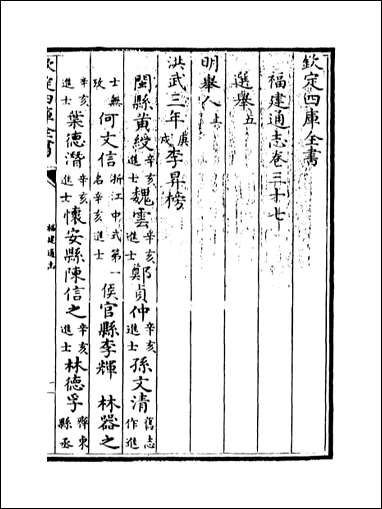 欽定四庫全書
福建通志卷三十七
選舉五
明舉人上
洪武三年庚戌李昇榜
閩縣黃綬辛亥進士魏雲辛亥進士鄭貞仲辛亥進士孫文清舊志作進
士無攷何文信浙江中式第一名辛亥進士侯官縣李輝 林器之
辛亥進士葉德潛辛亥進士懷安縣陳信之辛亥進士林德孚齊東縣丞
欽定四庫全書
福建通志